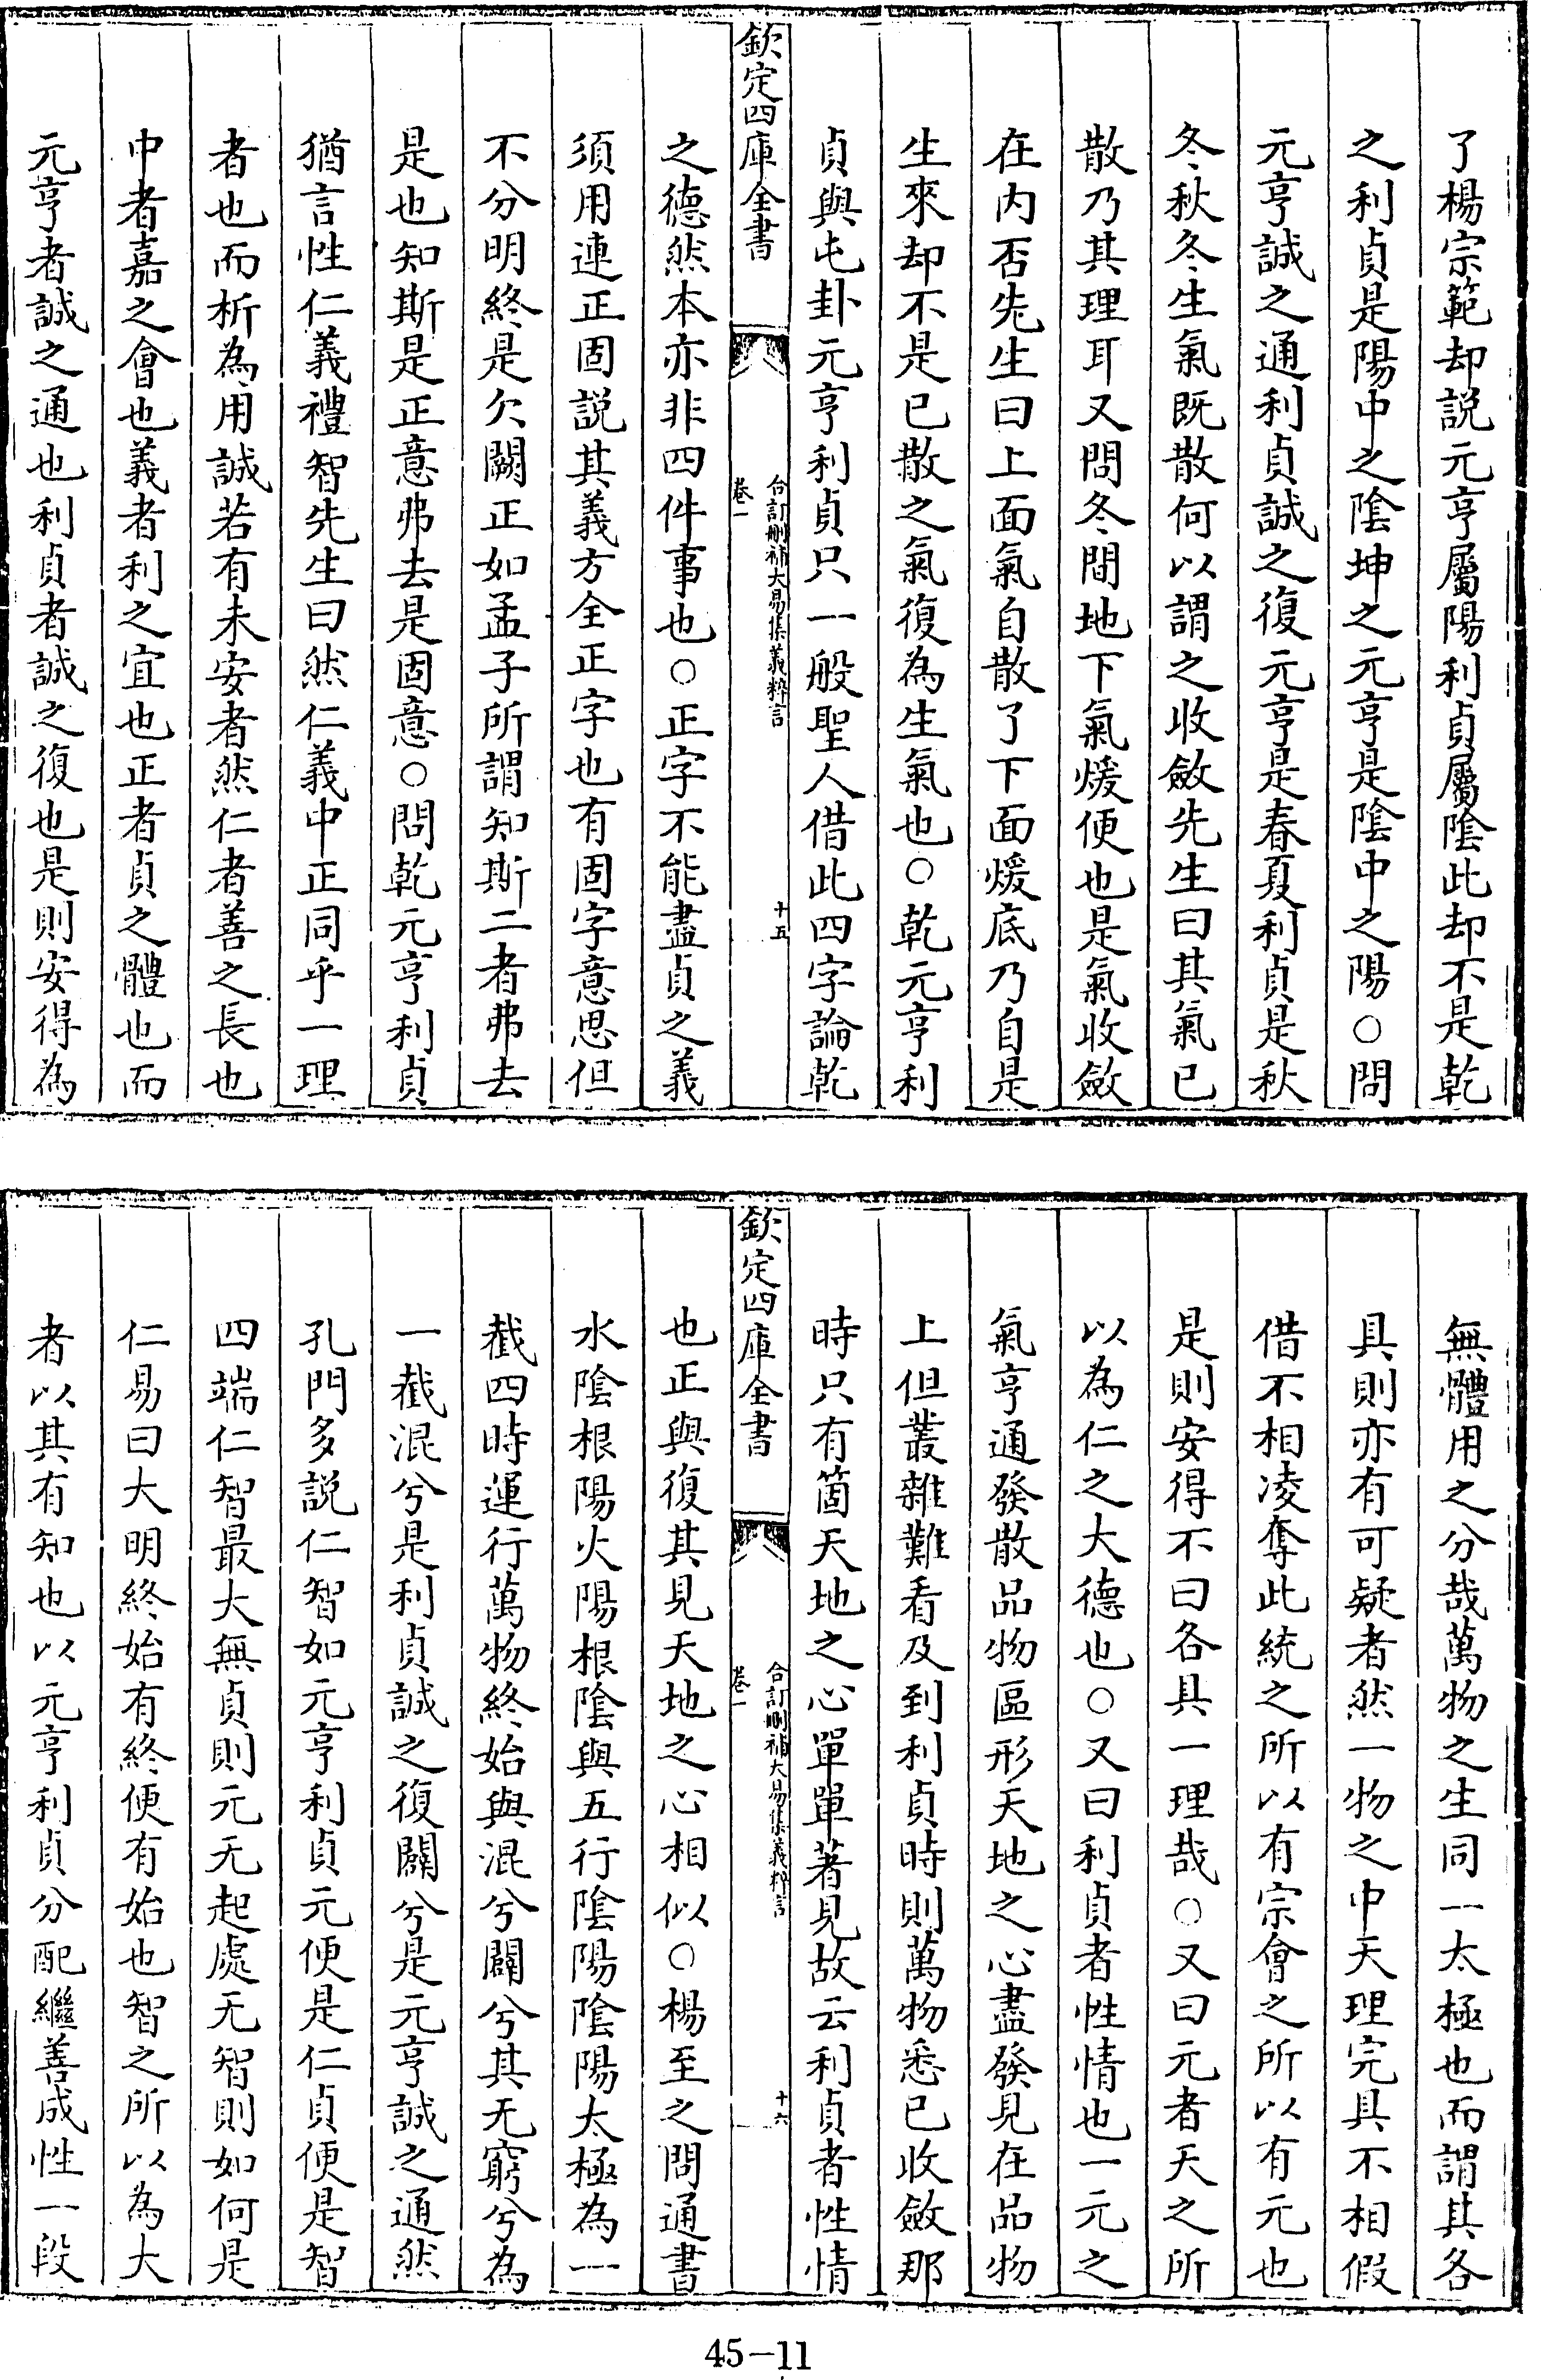 了楊宗範却説元亨屬陽利貞屬陰此却不是乾
之利貞是陽中之陰坤之元亨是陰中之陽○問
元亨誠之通利貞誠之復元亨是春夏利貞是秋
冬秋冬生氣既散何以謂之收斂先生曰其氣已
散乃其理耳又問冬間地下氣煖便也是氣收斂
在内否先生曰上面氣自散了下面煖底乃自是
生來却不是已散之氣復為生氣也○乾元亨利
貞與屯卦元亨利貞只一般聖人借此四字論乾
欽定四庫全書
合訂刪補大易集義粹言
卷一
十五
之德然本亦非四件事也○正字不能盡貞之義
須用連正固説其義方全正字也有固字意思但
不分明終是欠闕正如孟子所謂知斯二者弗去
是也知斯是正意弗去是固意○問乾元亨利貞
猶言性仁義禮智先生曰然仁義中正同乎一理
者也而析為用誠若有未安者然仁者善之長也
中者嘉之會也義者利之宜也正者貞之體也而
元亨者誠之通也利貞者誠之復也是則安得為
無體用之分哉萬物之生同一太極也而謂其各
具則亦有可疑者然一物之中天理完具不相假
借不相凌奪此統之所以有宗會之所以有元也
是則安得不曰各具一理哉○又曰元者天之所
以為仁之大德也○又曰利貞者性情也一元之
氣亨通發散品物區形天地之心盡發見在品物
上但叢雜難看及到利貞時則萬物悉已收斂那
時只有箇天地之心單單著見故云利貞者性情
欽定四庫全書
合訂刪補大易集義粹言
卷一
十六
也正與復其見天地之心相似○楊至之問通書
水陰根陽火陽根陰與五行陰陽陰陽太極為一
截四時運行萬物終始與混兮闢兮其无窮兮為
一截混兮是利貞誠之復闢兮是元亨誠之通然
孔門多説仁智如元亨利貞元便是仁貞便是智
四端仁智最大無貞則元无起處无智則如何是
仁易曰大明終始有終便有始也智之所以為大
者以其有知也以元亨利貞分配繼善成性一段
45-11